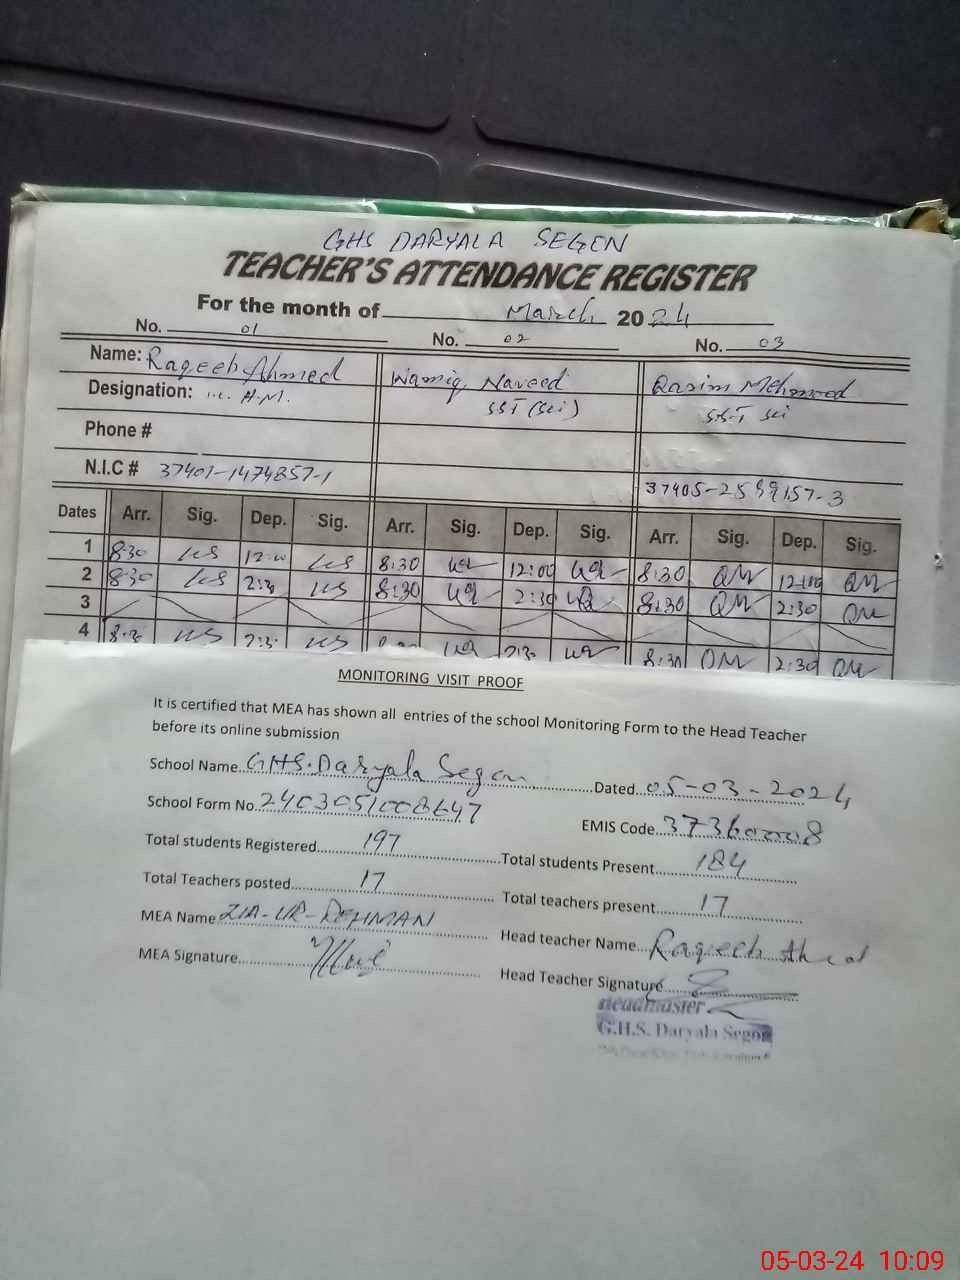 GHS DARYALA SEGEN
TEACHER'S ATTENDANCE REGISTER
For the month of March 2024
No. 01 No. 02 No. 03
Name: Raqeeb Ahmed Wamiq Naveed Qasim Mehmood
Designation: H.M. SST (Sci) SST Sci
Phone #
N.I.C # 37401-1474857-1
Dates Arr. Sig. Dep. Sig. Arr. Sig. Dep. Sig. Arr. Sig. Dep. Sig.
1 8:30 12:00 8:30 12:00 8:30 QM 12:00 QM
2 8:30 2:30 8:30 2:30 8:30 QM 2:30 QM
3
4 8:30 2:30 2:30 8:30 QM 2:30 QM
MONITORING VISIT PROOF
It is certified that MEA has shown all entries of the school Monitoring Form to the Head Teacher
before its online submission
School Name GHS. Daryala Segen Dated 05-03-2024
School Form No. EMIS Code
Total students Registered 197 Total students Present 184
Total Teachers posted 17 Total teachers present 17
MEA Name ZIA-UR-REHMAN Head teacher Name Raqeeb Ahmed
MEA Signature Head Teacher Signature
Headmaster
G.H.S. Daryala Segon
05-03-24 10:09